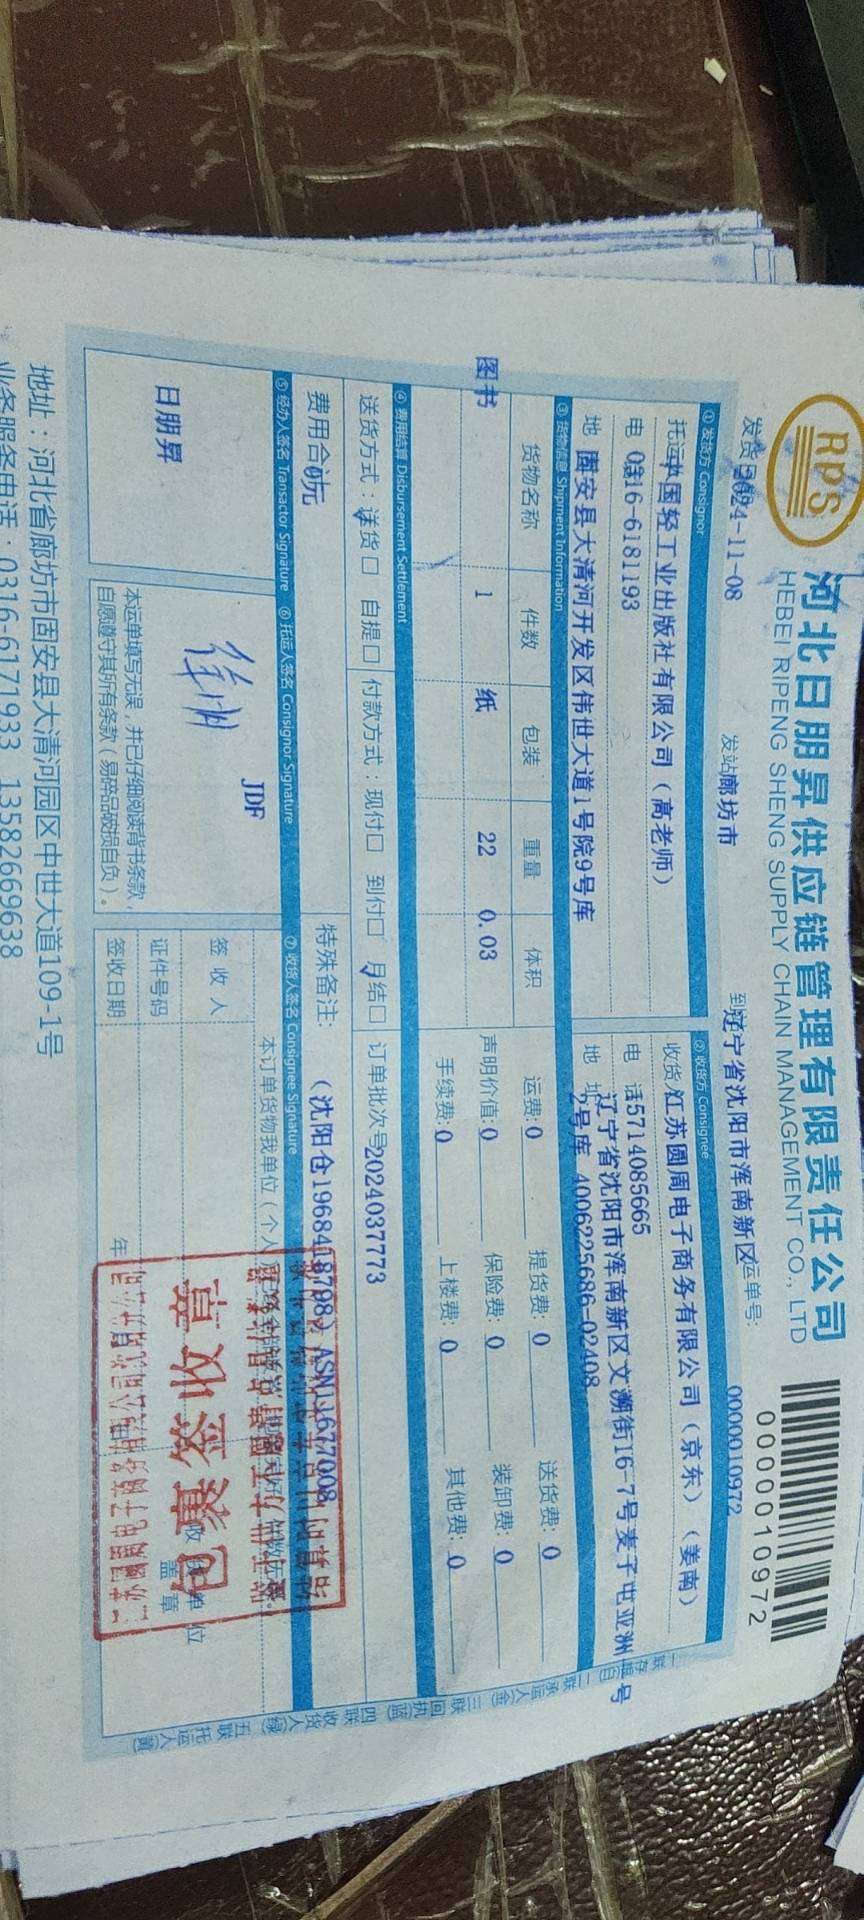 RPS
河北日朋昇供应链管理有限责任公司
HEBEI RIPENG SHENG SUPPLY CHAIN MANAGEMENT CO., LTD
0000010972
2024-11-08
发站廊坊市
到辽宁省沈阳市浑南新区
运单号:
0000010972
① 发货方 Consignor
② 收货方 Consignee
中国轻工业出版社有限公司(高老师)
收货江苏圆周电子商务有限公司(京东)(姜南)
电 0316-6181193
电 话5714085665
固安县大清河开发区伟世大道1号院9号库
辽宁省沈阳市浑南新区文溯街16-7号麦子屯亚洲
号
2号库 4006225686-02408
③ 货物信息 Shipment Information
货物名称 件数 包装 重量 体积
运费:0 提货费:0 送货费:0
图书 1 纸 22 0.03
声明价值:0 保险费:0 装卸费:0
手续费:0 上楼费:0 其他费:0
④ 费用结算 Disbursement Settlement
送货方式:送货□ 自提□ 付款方式:现付□ 到付□ 月结□ 订单批次号2024037773
费用合0元
特殊备注: (沈阳仓1968418798) ASN11677008
⑤ 经办人签名 Transactor Signature ⑥ 托运人签名 Consignor Signature ⑦ 收货人签名 Consignee Signature
本订单货物我单位(个人
日朋昇
JDF
签 收 人
证件号码
签收日期
年
本运单填写无误,并已仔细阅读背书条款,
自愿遵守其所有条款(易碎品破损自负)。
包裹签收章
单 位
盖 章
地址:河北省廊坊市固安县大清河园区中世大道109-1号
业务服务电话:0316-6171933 13582669638